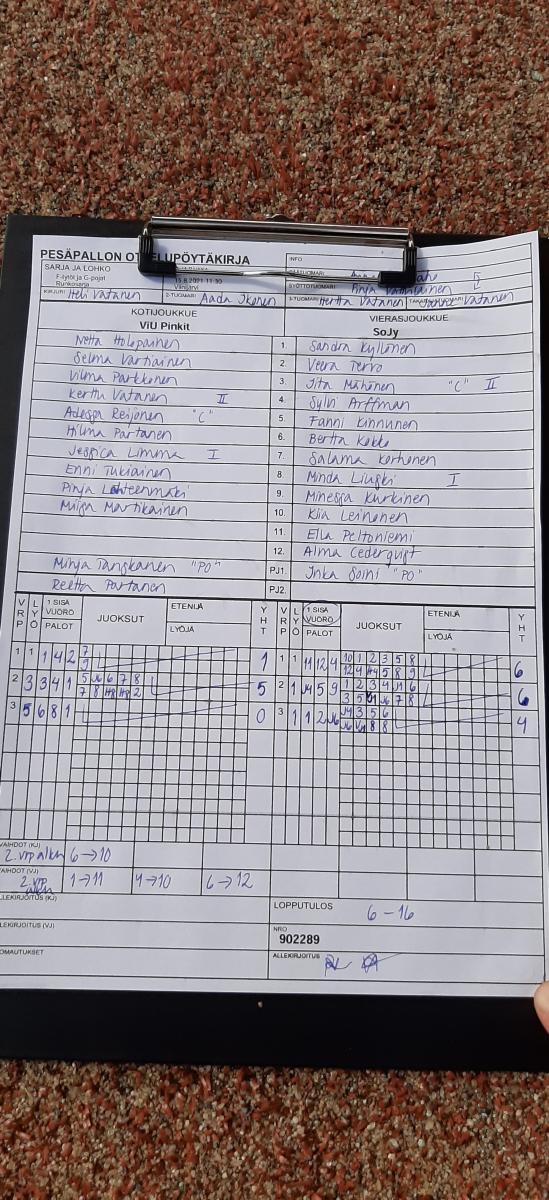 PESÄPALLON OT ELUPÖYTÄKIRJA
INFO
SARJA JA LOHKO
F-tytöt ja G-pojat
Runkosarja
5.8.2021 11:30
Värtsilä
SYÖTTÖTUOMARI
KIRJURI Heli Vatanen
2-TUOMARI Aada Ikonen
3-TUOMARI Hertta Vatanen
Vatanen
KOTIJOUKKUE
ViU Pinkit
VIERASJOUKKUE
SoJy
Netta Holopainen 1. Sandra Kyllönen
Selma Vartiainen 2. Veera Tervo
Vilma Parkkonen 3. Iita Mähönen "C" II
Kerttu Vatanen II 4. Sylvi Arffman
Adessa Reijonen "C" 5. Fanni Kinnunen
Hilma Partanen 6. Bertta Kokko
Jessica Limma I 7. Salama Korhonen
Enni Tukiainen 8. Minda Liuski I
Pinja Lähteenmäki 9. Minessa Kurkinen
Muija Martikainen 10. Kiia Leinonen
11. Ella Peltoniemi
12. Alma Cederqvist
Minja Tanskanen "PO" PJ1. Inka Soini "PO"
Reetta Partanen PJ2.
VRP LYÖ 1.SISÄ VUORO PALOT JUOKSUT ETENIJÄ LYÖJÄ YHT VRP LYÖ 1.SISÄ VUORO PALOT JUOKSUT ETENIJÄ LYÖJÄ YHT
1 1 1 4 2 7 1 1 1 11 12 4 10 1 2 3 5 8 6
9 12 4 5 8 9
2 3 3 4 1 5 6 7 8 5 2 1 5 9 1 2 3 4 6 6
7 8 2 3 5 7 8
3 5 6 8 1 0 3 1 1 2 3 5 6 4
8 8
VAIHDOT (KJ)
2. vrp alken 6→10
VAIHDOT (VJ)
2. vrp alken 1→11 4→10 6→12
ALLEKIRJOITUS (KJ)
LOPPUTULOS
6 - 16
ALLEKIRJOITUS (VJ)
NRO
902289
HUOMAUTUKSET
ALLEKIRJOITUS